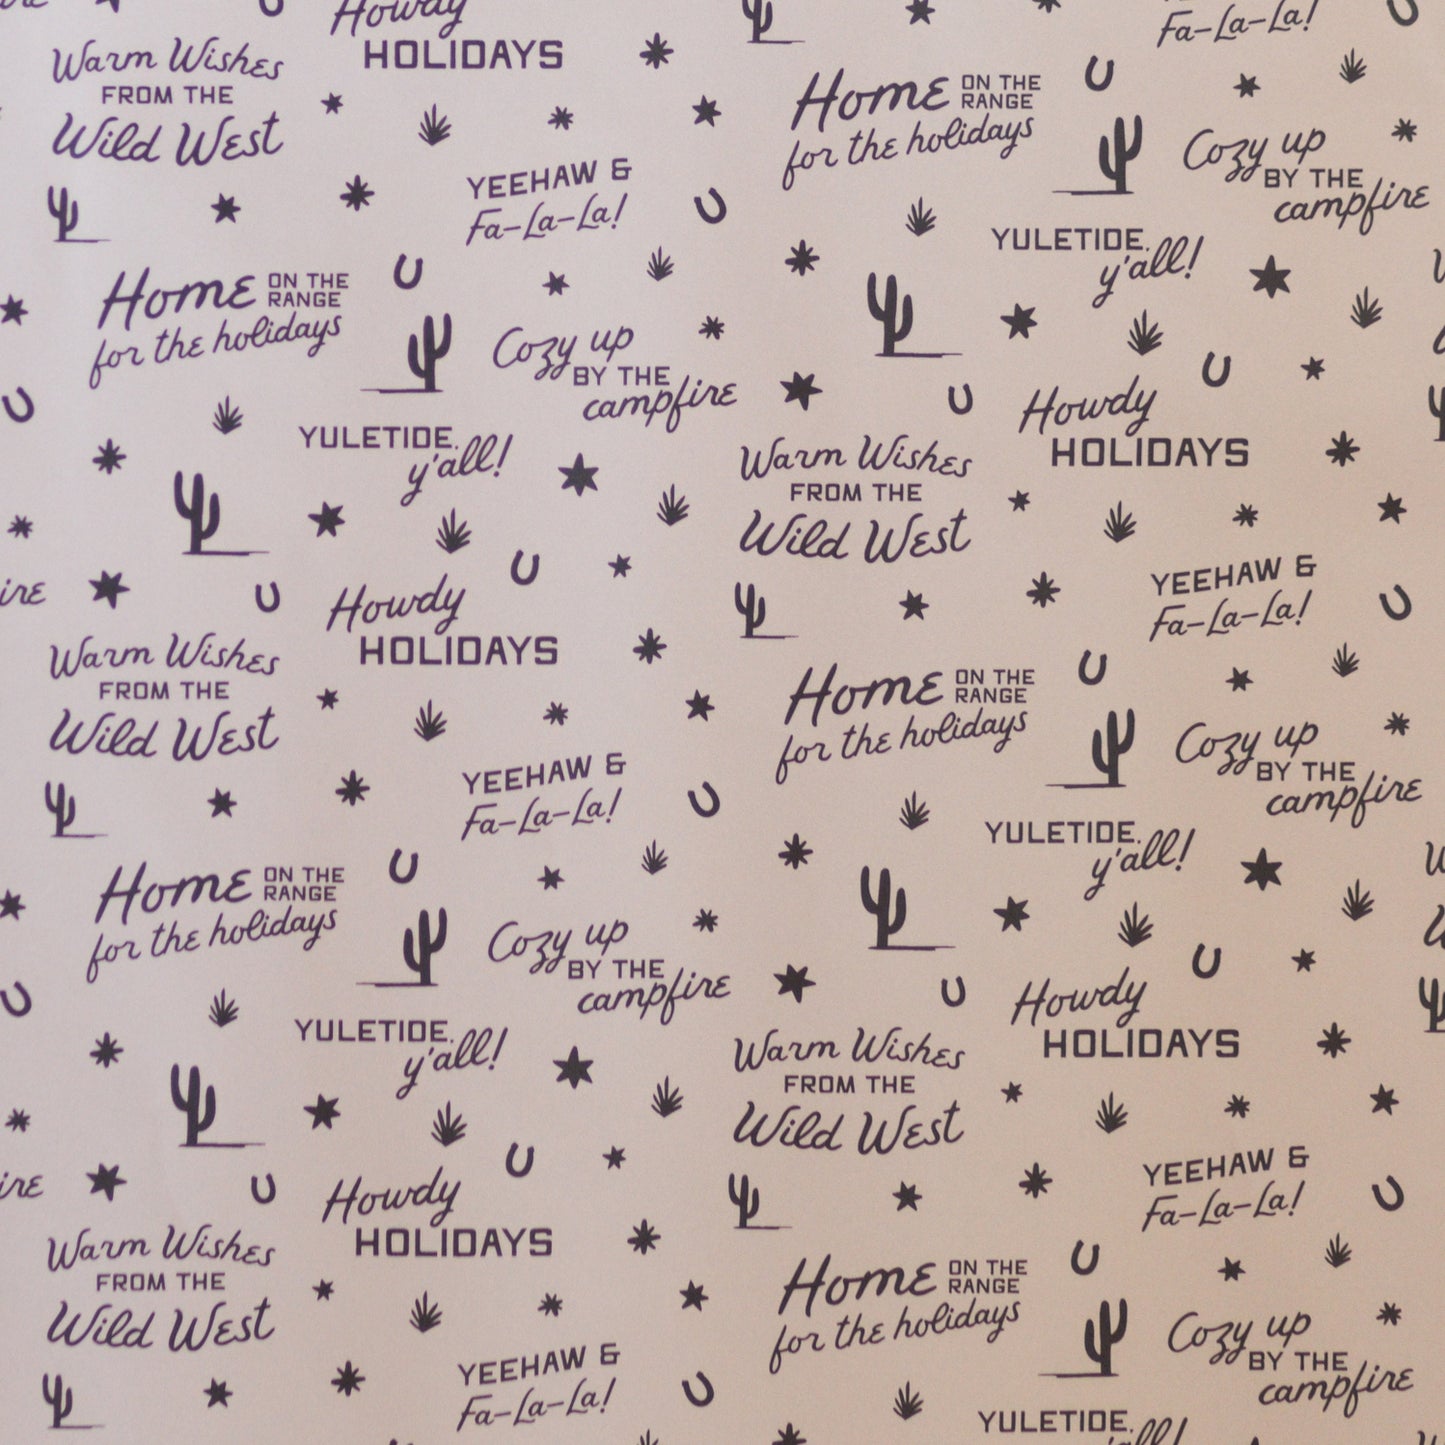 Howdy
HOLIDAYS
Fa-La-La!
Warm Wishes
FROM THE
Wild West
Home ON THE
RANGE
for the holidays
YEEHAW &
Fa-La-La!
Cozy up
BY THE
campfire
YULETIDE,
y'all!
Home ON THE
RANGE
for the holidays
Cozy up
BY THE
campfire
YULETIDE,
y'all!
Howdy
HOLIDAYS
Warm Wishes
FROM THE
Wild West
Howdy
HOLIDAYS
YEEHAW &
Fa-La-La!
Warm Wishes
FROM THE
Wild West
Home ON THE
RANGE
for the holidays
YEEHAW &
Fa-La-La!
Cozy up
BY THE
campfire
YULETIDE,
y'all!
Home ON THE
RANGE
for the holidays
Cozy up
BY THE
campfire
YULETIDE,
y'all!
Howdy
HOLIDAYS
Warm Wishes
FROM THE
Wild West
Howdy
HOLIDAYS
YEEHAW &
Fa-La-La!
Warm Wishes
FROM THE
Wild West
Home ON THE
RANGE
for the holidays
YEEHAW &
Fa-La-La!
Cozy up
BY THE
campfire
YULETIDE,
y'all!